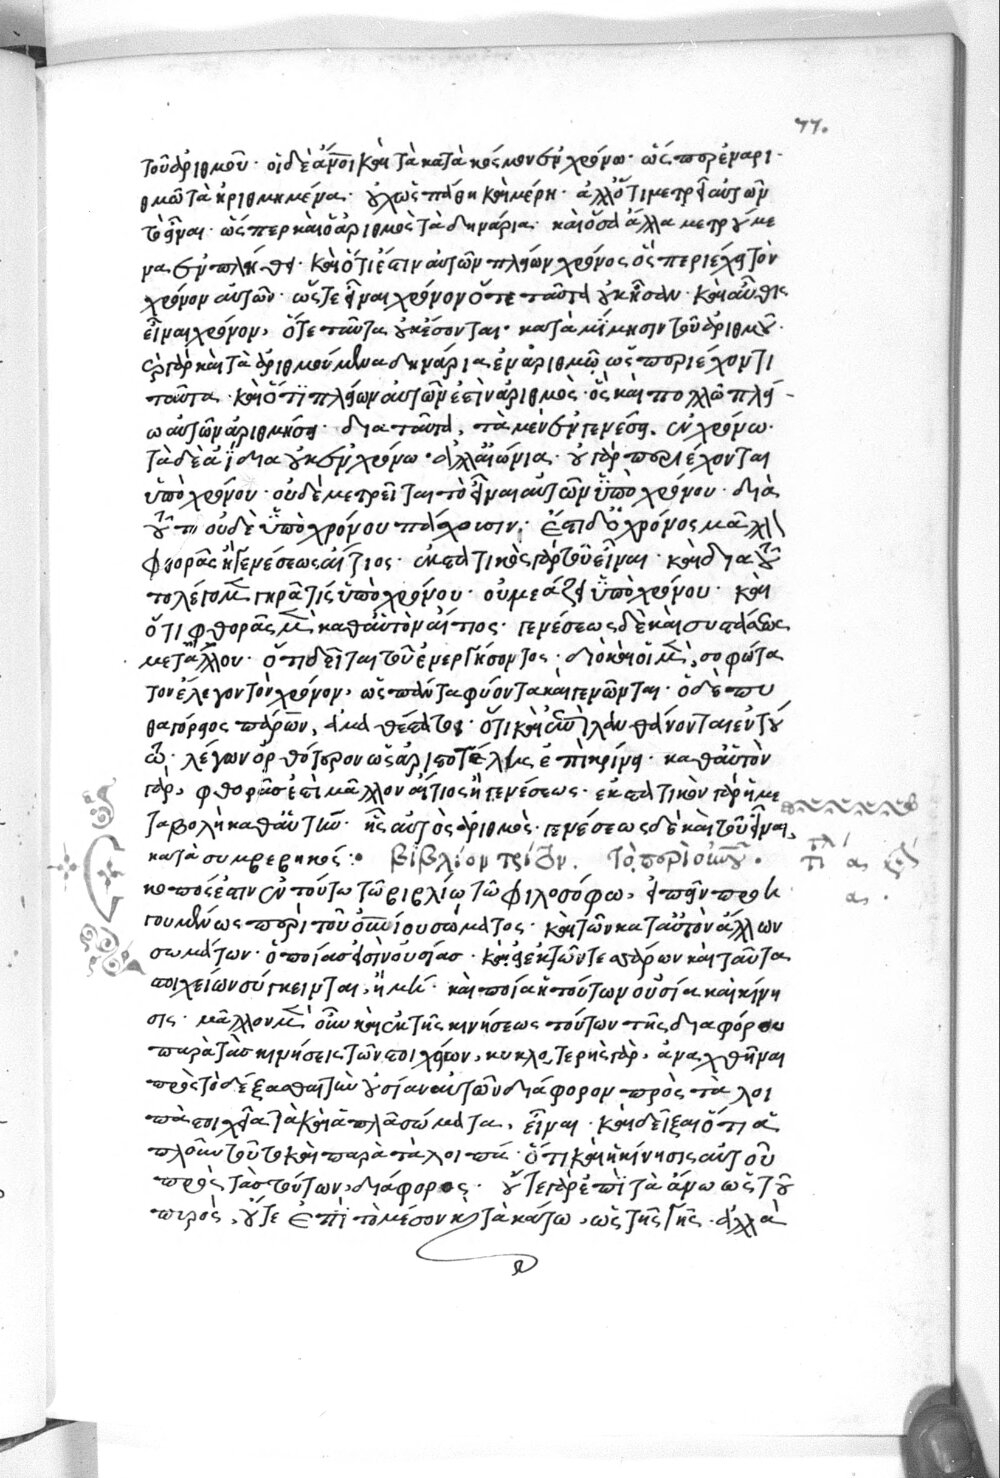 77.
τοῦ ἀριθμοῦ· οἱ δὲ καὶ τὰ κατὰ κόσμον ἐν χρόνω· ὥσπερ ἐν ἀρι
θμῶ τὰ ἠριθμημένα· οὐχ ὡς πάθη καὶ μέρη· ἀλλ' ὅτι μετρεῖ αὐτῶν
τὸ εἶναι· ὥσπερ καὶ ὁ ἀριθμὸς τὰ δηνάρια· καὶ ὅσα ἄλλα μετρούμε
να ἐν πλήθει· καὶ ὅτι ἐστιν αὐτῶν πλείων χρόνος ὃς περιέχει τὸν
χρόνον αὐτῶν· ὥστε εἶναι χρόνον ὅτε ταῦτα οὐκ ἦσαν· καὶ αὖθις
εἶναι χρόνον, ὅτε ταῦτα οὐκ ἔσονται· κατὰ μίμησιν τοῦ ἀριθμοῦ·
γὰρ καὶ τὰ ἀριθμούμενα δηνάρια ἐν ἀριθμῶ ὡς περιέχοντι
ταῦτα· καὶ ὅτι πλείων αὐτῶν ἐστὶν ἀριθμὸς· ὃς καὶ πολλῶ πλεί
ω αὐτῶν ἀριθμήσει· διὰ ταῦτα, τὰ μὲν ἐν γενέσει ἐν χρόνω·
τὰ δὲ ἀΐδια οὐκ ἐν χρόνω· ἀλλ' αἰώνια· οὐ γὰρ περιέχονται
ὑπὸ χρόνου· οὐδὲ μετρεῖται τὸ εἶναι αὐτῶν ὑπὸ χρόνου· διὰ
οὐδὲ ὑπὸ χρόνου πάσχουσιν· ἔτι δ' ὁ χρόνος μᾶλλον
φθορᾶς ἢ γενέσεως αἴτιος· ἐκστατικὸς γὰρ τοῦ εἶναι· καὶ διὰ τοῦ
το λέγομεν γηρᾷ τις ὑπὸ χρόνου· οὐ νεάζει ὑπὸ χρόνου· καὶ
ὅτι φθορᾶς μὲν καθ' αὑτὸν αἴτιος· γενέσεως δὲ καὶ συστάσεως
μετ' ἄλλου· ὅτι δεῖται τοῦ ἐνεργήσοντος· διὸ καὶ οἱ μὲν, σοφώτα
τον ἔλεγον τὸν χρόνον, ὡς πάντα φύοντα καὶ γεννῶνται· ὁ δὲ πυ
θαγόρειος παρὼν, ἀμαθέστατος· ὅτι καὶ ἐπιλανθάνονται ἐν τού
τω· λέγων ὀρθότερον ὡς ἀριστοτέλης ἐπικρίνει· καθ' αὑτὸν
γὰρ, φθορᾶς ἐστὶ μᾶλλον αἴτιος ἢ γενέσεως· ἐκστατικὸν γὰρ ἡ με
ταβολὴ καθ' αὑτὴν· ἧς αὐτὸς ἀριθμὸς· γενέσεως δὲ καὶ τοῦ εἶναι,
κατὰ συμβεβηκός: βιβλίον τρίτον. Τὸ περὶ οὐρανοῦ.
κοπός ἐστιν ἐν τούτω τῶ βιβλίω τῶ φιλοσόφω, εἰπεῖν προη
γουμένως περὶ τοῦ οὐρανίου σώματος· καὶ τῶν κατ' αὐτὸν ἄλλων
σωμάτων· ὁποίας εἰσὶν οὐσίας· καὶ εἰ ἐκ τῶν τεσσάρων καὶ ταῦτα
στοιχείων σύγκεινται, ἢ μή· καὶ ποία ἡ τούτων οὐσία καὶ κίνη
σις· μᾶλλον μὲν οὖν καὶ ἐκ τῆς κινήσεως τούτων τῆς διαφόρου
παρὰ τὰς κινήσεις τῶν στοιχείων, κυκλοτερὴς γὰρ, ἀναχθῆναι
πρὸς τὸ δέξασθαι τὴν οὐσίαν αὐτῶν διάφορον πρὸς τὰ λοι
πὰ στοιχεῖα τὰ καὶ ἁπλᾶ σώματα, εἶναι· καὶ δεῖξαι ὅτι ἁ
πλοῦν τοῦτο καὶ παρὰ τὰ λοιπά· ὅτι καὶ ἡ κίνησις αὐτοῦ
πρὸς τὰς τούτων, διάφορος· οὔτε γὰρ ἐπὶ τὰ ἄνω ὡς τοῦ
πυρὸς, οὔτε ἐπὶ τὸ μέσον καὶ τὰ κάτω, ὡς τῆς γῆς· ἀλλὰ